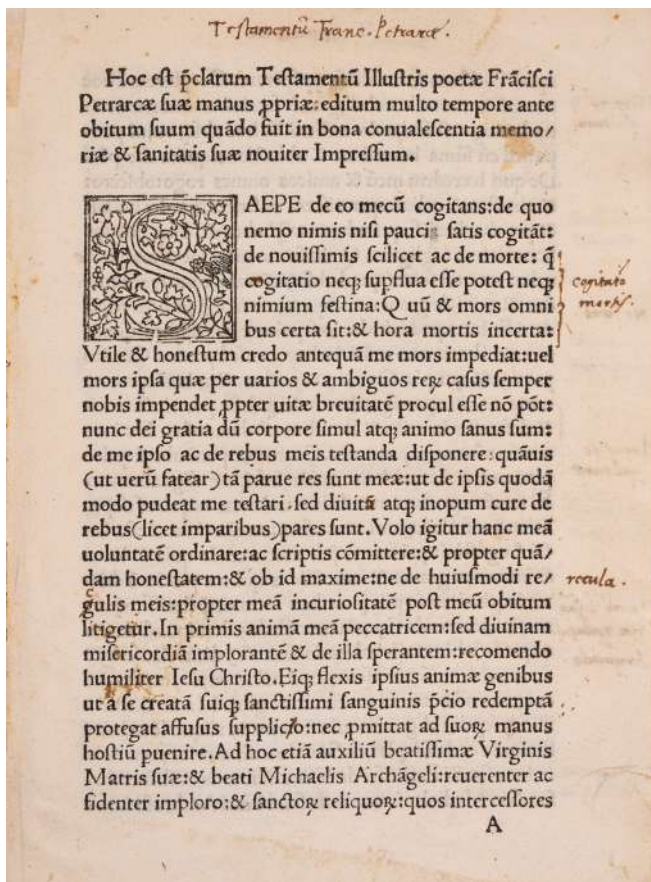 Testamentū Franc. Petrarcæ.
Hoc est p̄clarum Testamentū Illustris poetæ Frācisci
Petrarcæ suæ manus ꝓpriæ: editum multo tempore ante
obitum suum quādo fuit in bona conualescentia memo/
riæ & sanitatis suæ nouiter Impressum.
SAEPE de eo mecū cogitans: de quo
nemo nimis nisi pauci satis cogitāt:
de nouissimis scilicet ac de morte: q̄
cogitatio neqꝫ supflua esse potest neqꝫ
cogitatio
mortis.
nimium festina: Quū & mors omni
bus certa sit: & hora mortis incerta:
Vtile & honestum credo antequā me mors impediat: uel
mors ipsa quæ per uarios & ambiguos reꝝ casus semper
nobis impendet ꝓpter uitæ breuitatē procul esse nō pōt:
nunc dei gratia dū corpore simul atqꝫ animo sanus sum:
de me ipso ac de rebus meis testanda disponere: quāuis
(ut uerū fatear) tā parue res sunt meæ: ut de ipsis quodā
modo pudeat me testari. sed diuitū atqꝫ inopum cure de
rebus (licet imparibus) pares sunt. Volo igitur hanc meā
uoluntatē ordinare: ac scriptis cōmittere: & propter quā/
dam honestatem: & ob id maxime: ne de huiusmodi re/
recula.
c
gulis meis: propter meā incuriositatē post meū obitum
litigetur. In primis animā meā peccatricem: sed diuinam
misericordiā implorantē & de illa sperantem: recomendo
humiliter Iesu Christo. Eiqꝫ flexis ipsius animæ genibus
ut a se creatā suiqꝫ sanctissimi sanguinis p̄cio redemptā
protegat affusus supplico: nec ꝓmittat ad suoꝝ manus
hostiū puenire. Ad hoc etiā auxiliū beatissimæ Virginis
Matris suæ: & beati Michaelis Archāgeli: reuerenter ac
fidenter imploro: & sanctoꝝ reliquoꝝ: quos intercessores
A